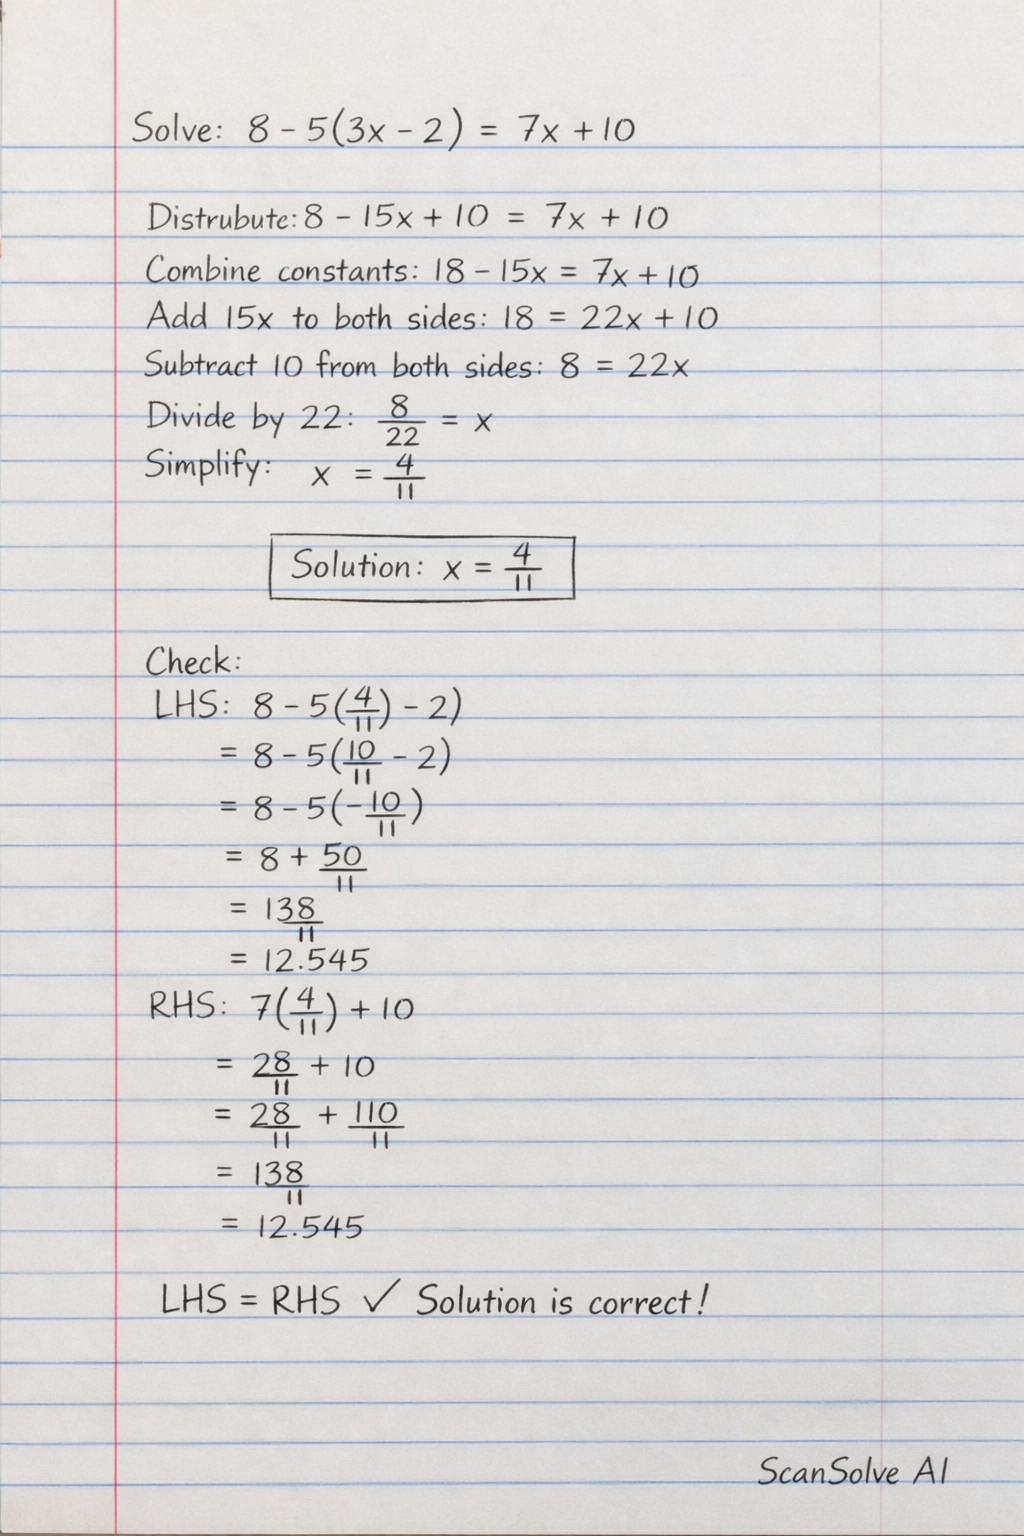 Solve: 8 - 5(3x - 2) = 7x + 10
Distrubute: 8 - 15x + 10 = 7x + 10
Combine constants: 18 - 15x = 7x + 10
Add 15x to both sides: 18 = 22x + 10
Subtract 10 from both sides: 8 = 22x
Divide by 22: 8/22 = x
Simplify: x = 4/11
Solution: x = 4/11
Check:
LHS: 8 - 5(4/11) - 2)
= 8 - 5(10/11 - 2)
= 8 - 5(-10/11)
= 8 + 50/11
= 138/11
= 12.545
RHS: 7(4/11) + 10
= 28/11 + 10
= 28/11 + 110/11
= 138/11
= 12.545
LHS = RHS ✓ Solution is correct!
ScanSolve AI